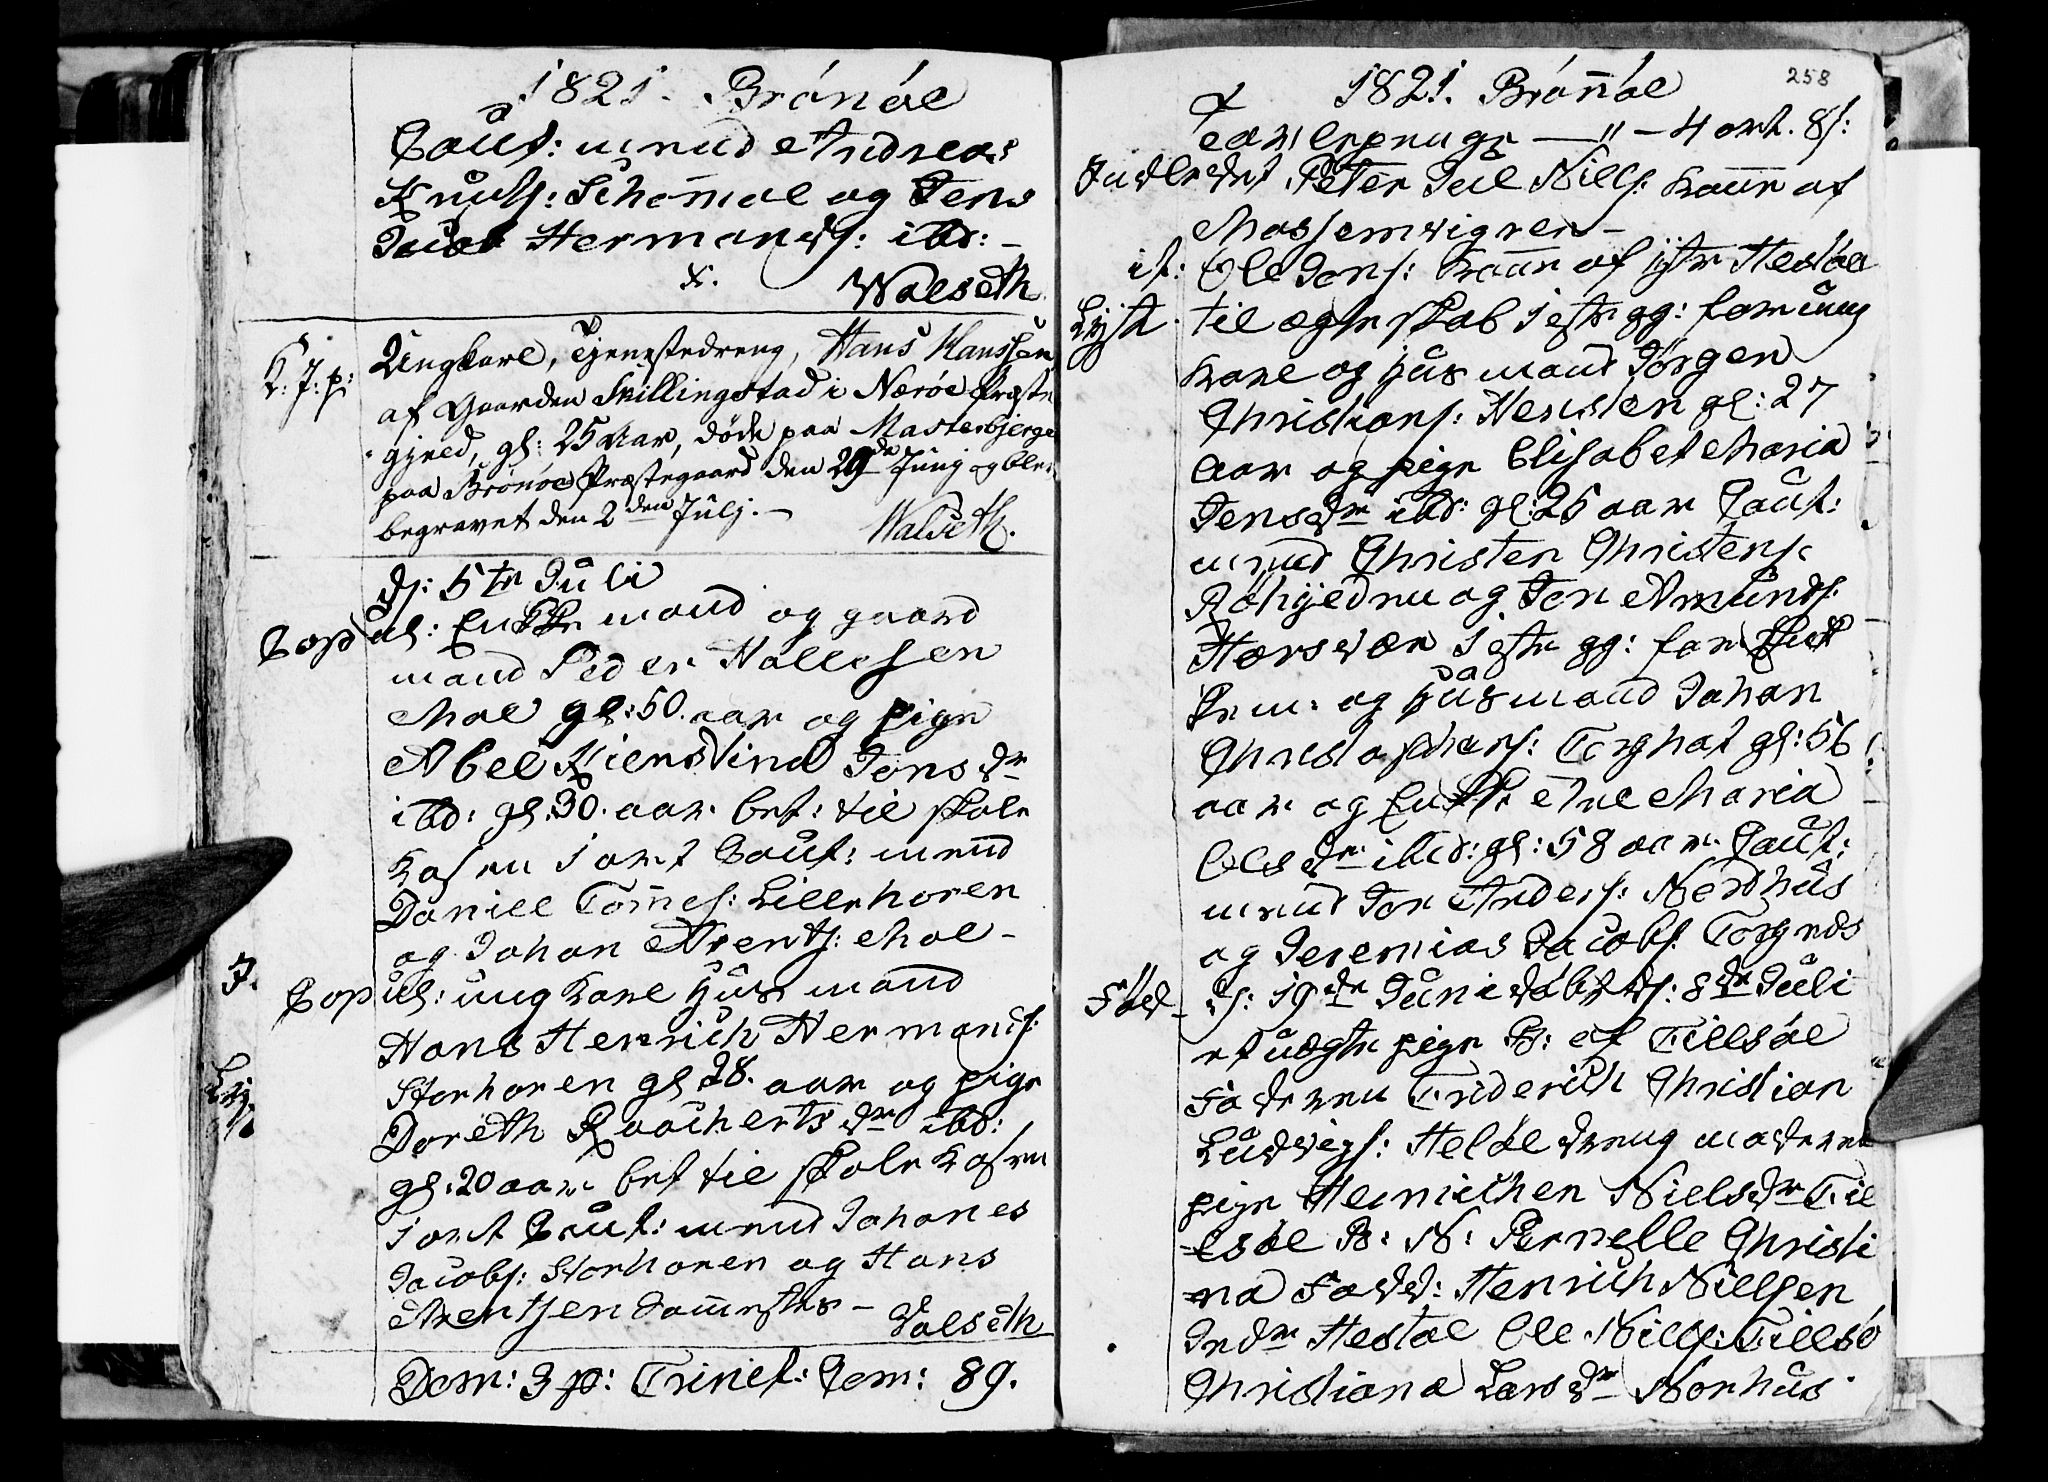 1821. Brónóe
Caut: mend Andreas
Knuts: Schomoe og Jens
Jacob Hermands: ibd: –
Walseth
K: J: p: Ungkarl, Tjenestedreng, Hans Hanssen
af Gaarden Skillingstad i Nærøe Præste
gjeld, gl: 25 Aar, døde paa Masterbjerget
paa Brønøe Præstegaard den 29de Junj og blev
begravet den 2den Julj. –
Walseth.
d: 5te Juli
Copul: Enkemand og gaard
mand Peder Hallesen
Moe gl: 50. aar og pige
Abel Kierstina Jonsdr
ibd: gl: 30. aar. bet: til skole
Kassen 1 ort Caut: mend
Daniel Tomes: Lillehoren
og Johan Arents: Moe –
Copul: ung Karl Husmand
Hans Henrich Hermands:
Storhoren gl 28. aar og pige
Doreth Roachertsdr ibd:
gl: 20 aar bet til skole Kassen
1 ort Caut: mend Johanes
Jacobs: Storhoren og Hans
Arentsen
Valseth
Dom: 3 p: Trinit: Com: 89.
258
1821. Brónóe
Tavlepenge — " — 4 ort. 8 s:
Indledet Peter Juel Niels: Kone af
Mossemvigen –
it: Ole Jons: Kone af ytr Hestøe
Lyst til ægteskab 1ste gg: for ung
Karl og Husmand Jørgen
Christians: Hensten gl: 27
Aar og pige Elisabet Maria
Jensdr ibd: gl: 25 aar Caut:
mend Christen Christens:
og Jon Amunds:
Horsvær 1ste gg: for Enk
kem. og Husmand Johan
Christophers: Torghat gl: 56
aar og Enke Ane Maria
Olsdr ibid: gl: 58 aar. Caut:
mend Jon Anders: Nordhus
og Jeremias Jacobs: Torgnes
Fød – d: 19de Juni døbt d: 8de Juli
et uægte pige B: af Tillsøe
Faderen Friderich Christian
Ludvigs: Heløe dreng moderen
pige Hemichen Nielsdr Til
søe B: N: Pernelle Christi
na Fadd: Henrich Nielsen
Indr Hestøe Ole Niels: Tillsø
Christiana Larsdr Norhus